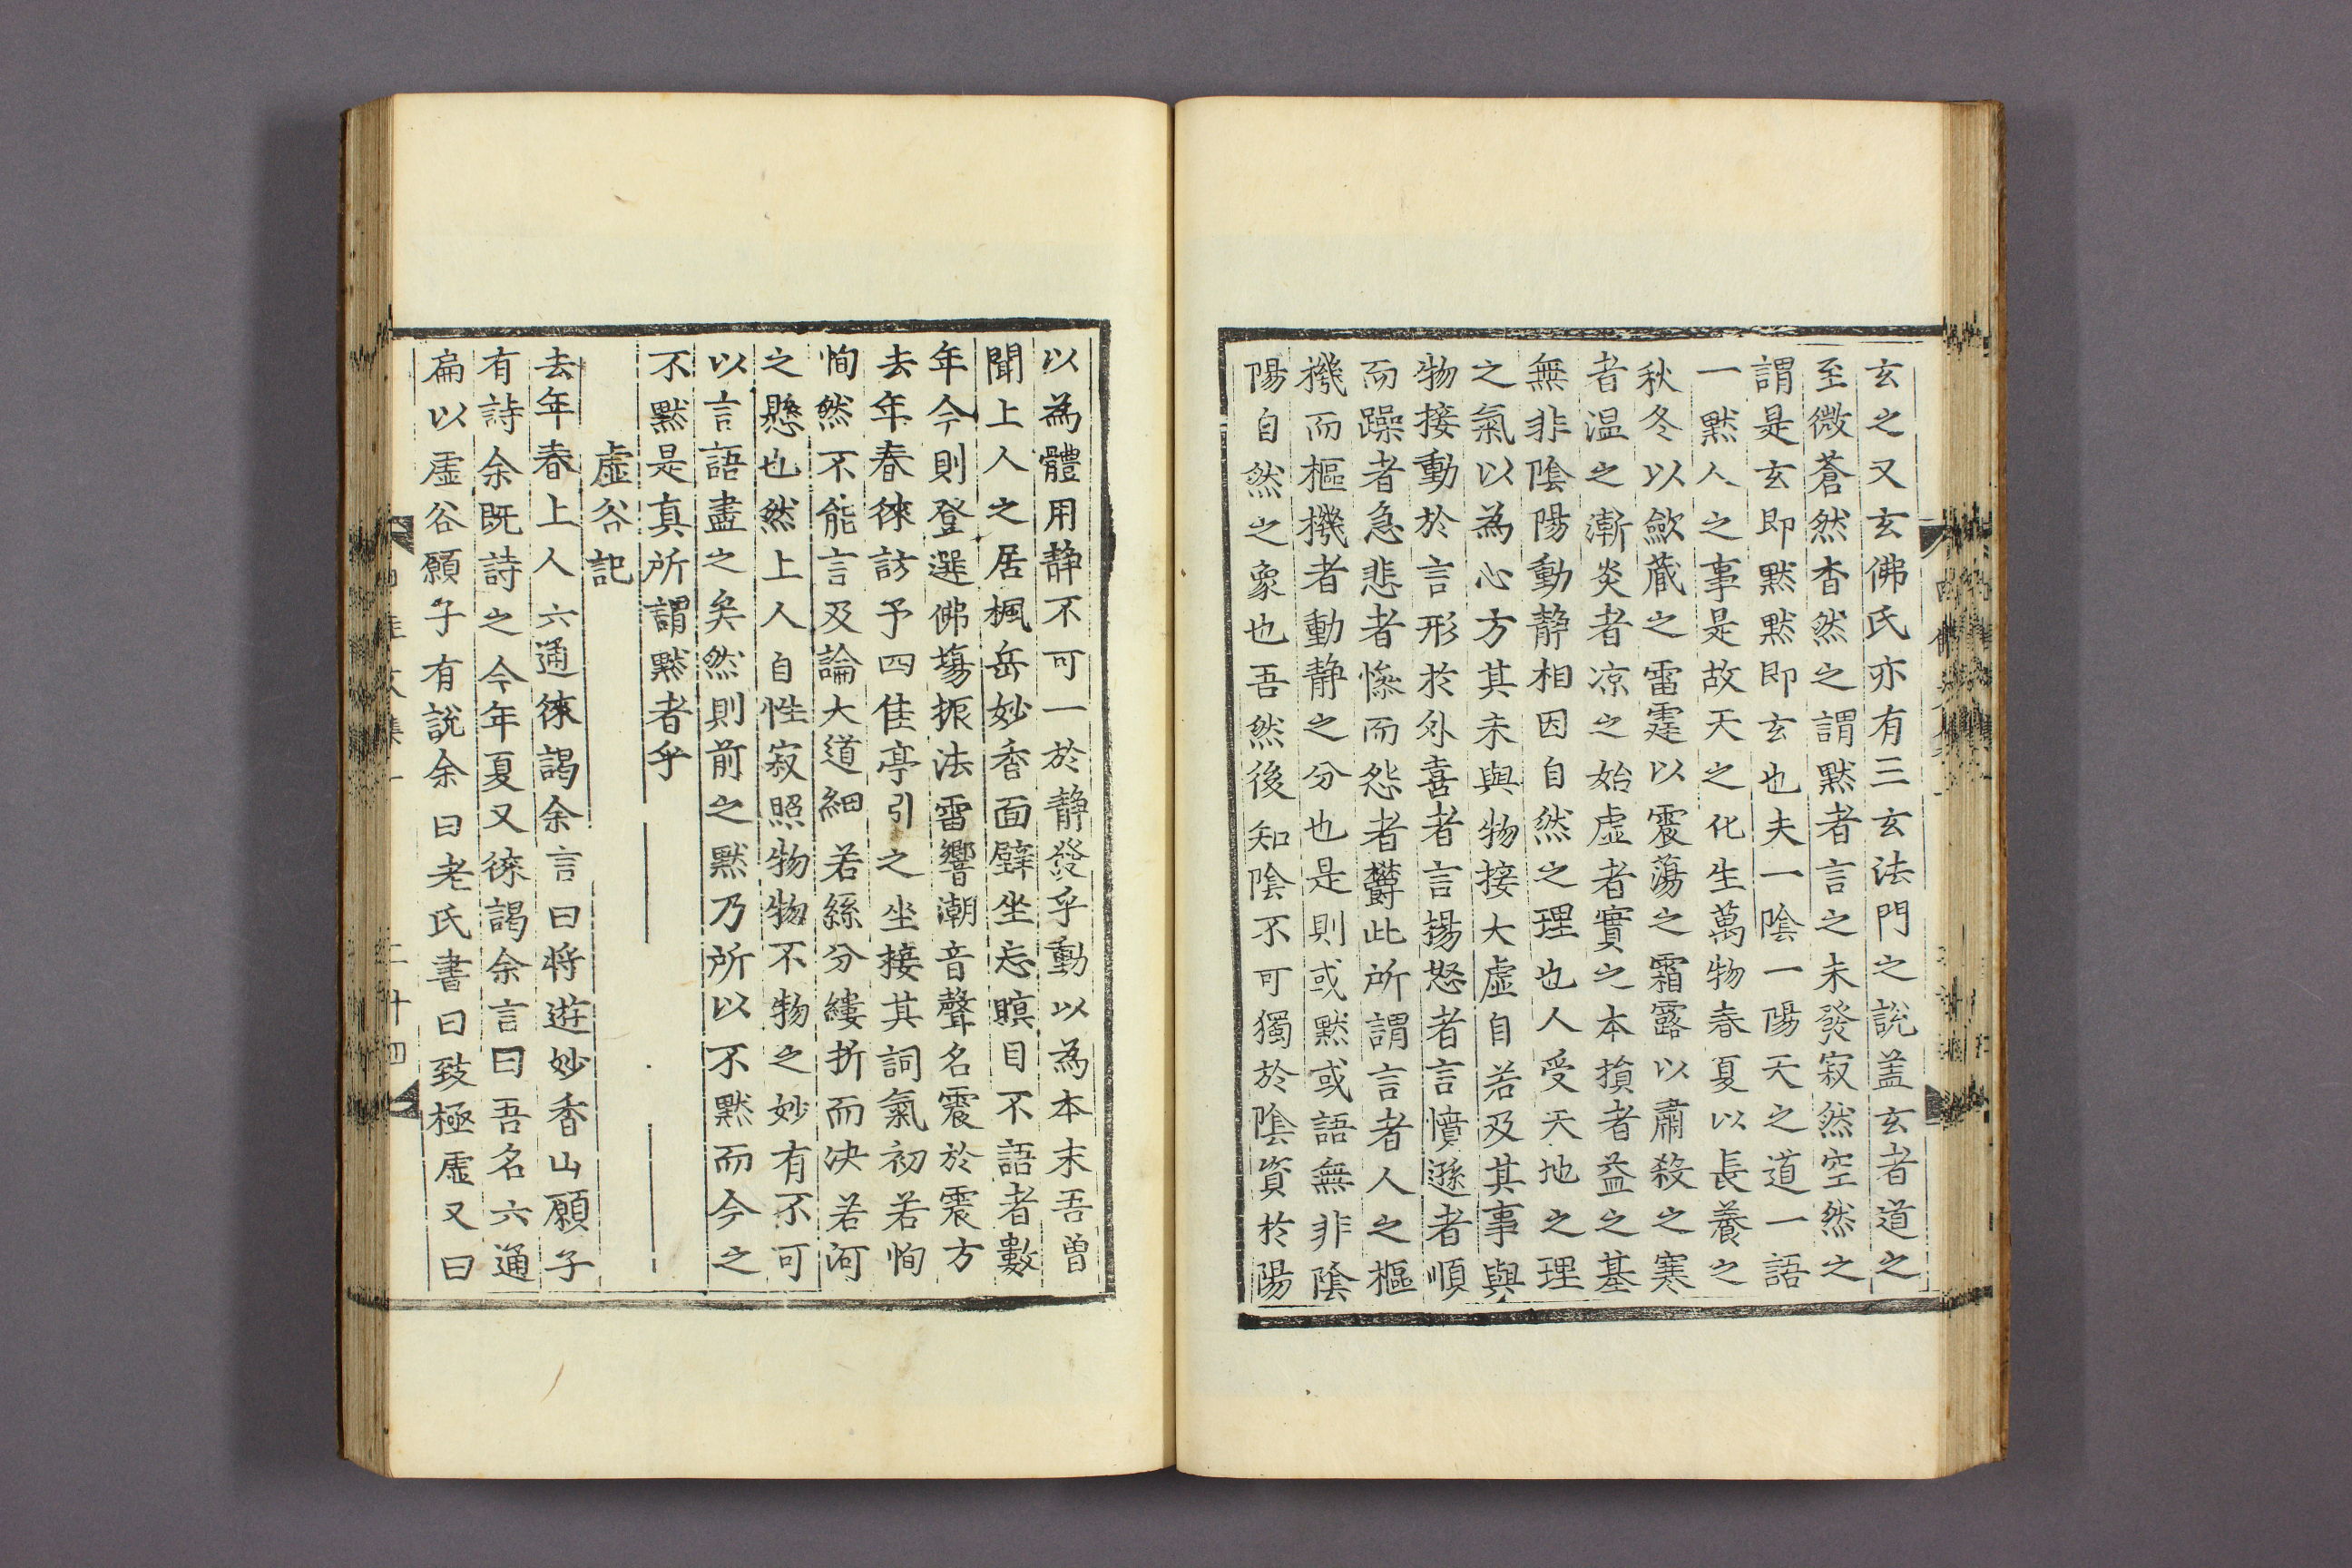 玄之又玄佛氏亦有三玄法門之說盖玄者道之
至微蒼然杳然之謂默者言之未發寂然空然之
謂是玄即默默即玄也夫一陰一陽天之道一語
一默人之事是故天之化生萬物春夏以長養之
秋冬以歛蔵之雷霆以震蕩之霜露以肅殺之寒
者温之漸炎者凉之始虛者實之本損者益之基
無非陰陽動静相因自然之理也人受天地之理
之氣以為心方其未與物接大虛自若及其事與
物接動於言形於外喜者言揚怒者言憤遜者順
而躁者急悲者慘而怨者欝此所謂言者人之樞
機而樞機者動静之分也是則或默或語無非陰
陽自然之象也吾然後知陰不可獨於陰資於陽
以為體用静不可一於静發乎動以為本末吾曾
聞上人之居楓岳妙香面壁坐忘瞑目不語者數
年今則登選佛塲振法雷響潮音聲名震於震方
去年春徠訪予四佳亭引之坐接其詞氣初若恂
恂然不能言及論大道細若絲分縷折而决若河
之懸也然上人自性寂照物物不物之妙有不可
以言語盡之矣然則前之默乃所以不默而今之
不默是真所謂默者乎
虛谷記
去年春上人六通徠謁余言曰将遊妙香山願子
有詩余既詩之今年夏又徠謁余言曰吾名六通
扁以虛谷願子有說余曰老氏書曰致極虛又曰
四佳文集一
二十四